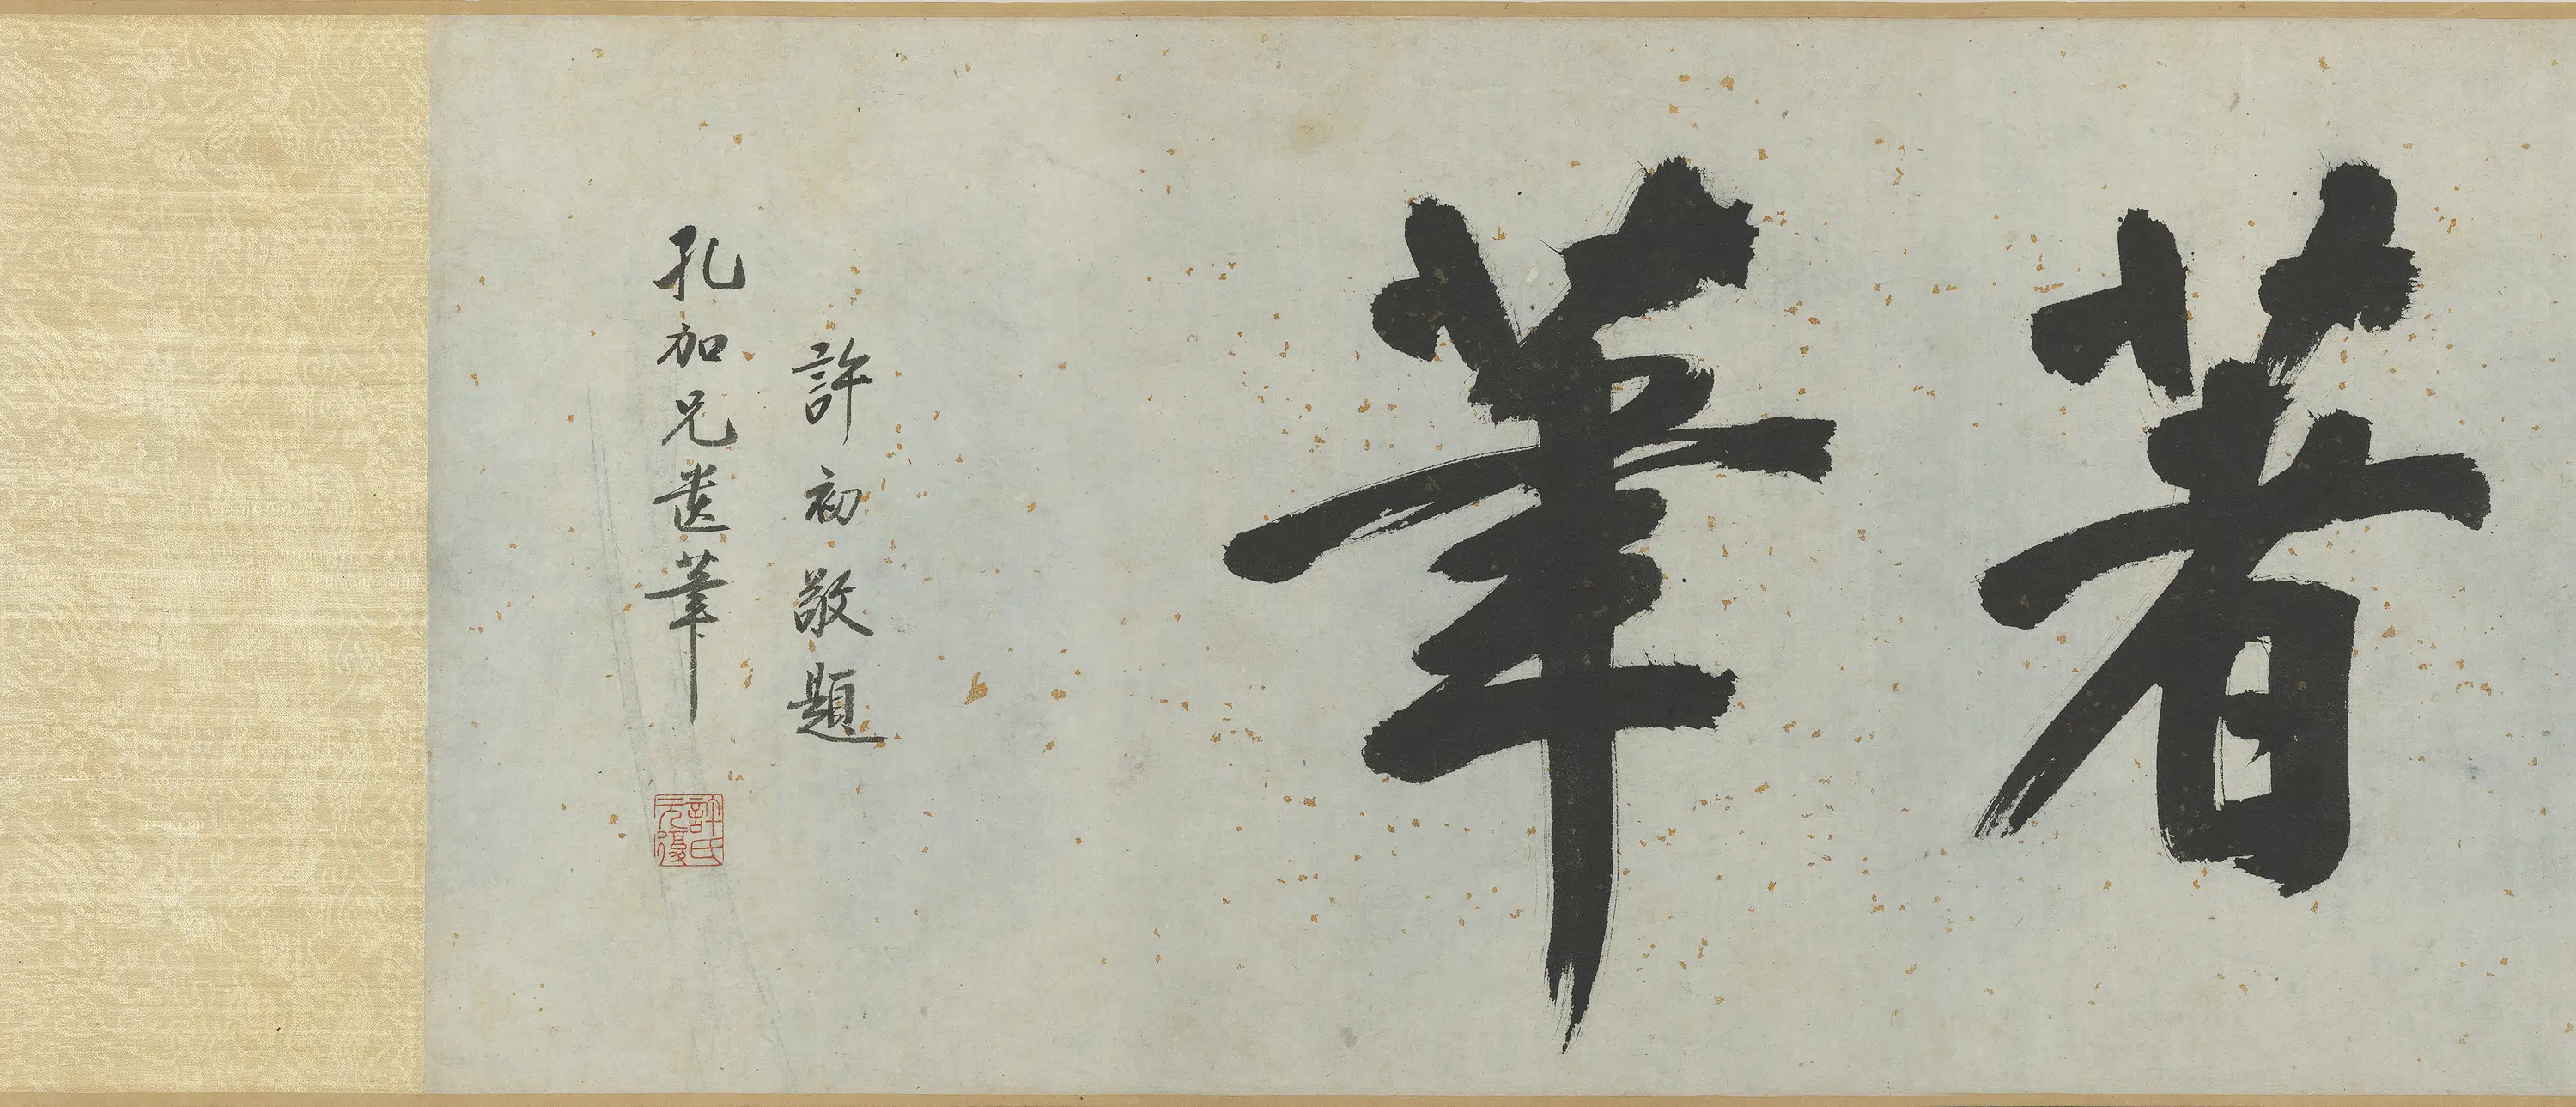 著筆
許初敬題
孔加兄遺筆
許氏元復